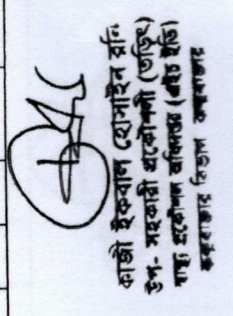 কাজী ইকবাল হোসাইন রনি
উপ- সহকারী প্রকৌশলী (তড়িৎ)
স্বাস্থ্য প্রকৌশল অধিদপ্তর (এইচ ইডি)
কক্সবাজার বিভাগ কক্সবাজার